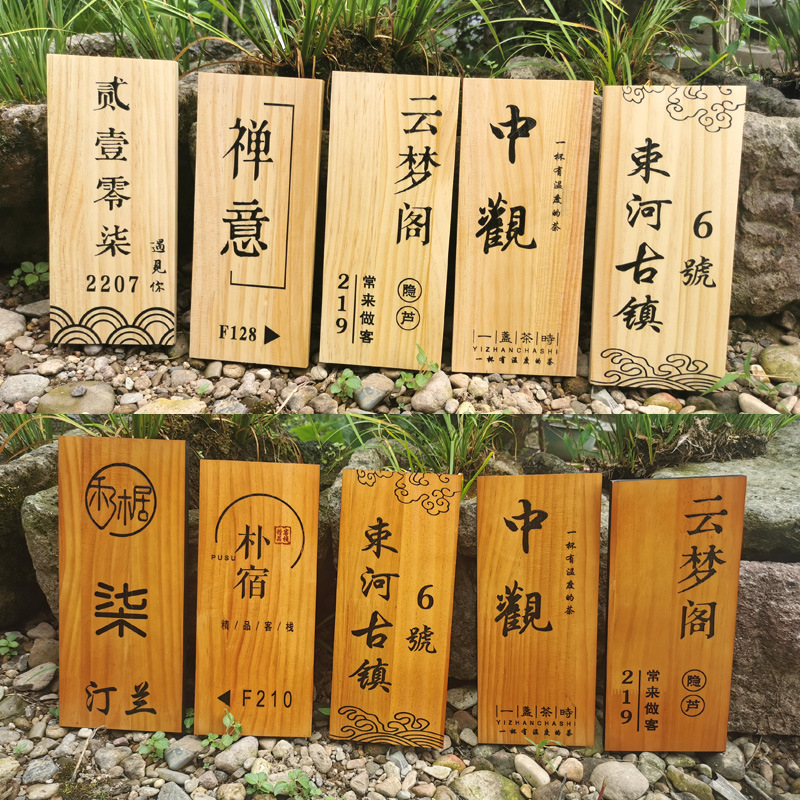 贰壹零柒
2207
遇見你
禅意
F128
云梦阁
219
常来做客
隐芦
中觀
一杯有温度的茶
一盏茶時
YIZHANCHASHI
一杯有温度的茶
束河古镇
6號
和椐
柒
汀兰
PUSU
朴宿
精/品/客/栈
F210
束河古镇
6號
中觀
一杯有温度的茶
一盏茶時
YIZHANCHASHI
一杯有温度的茶
云梦阁
219
常来做客
隐芦